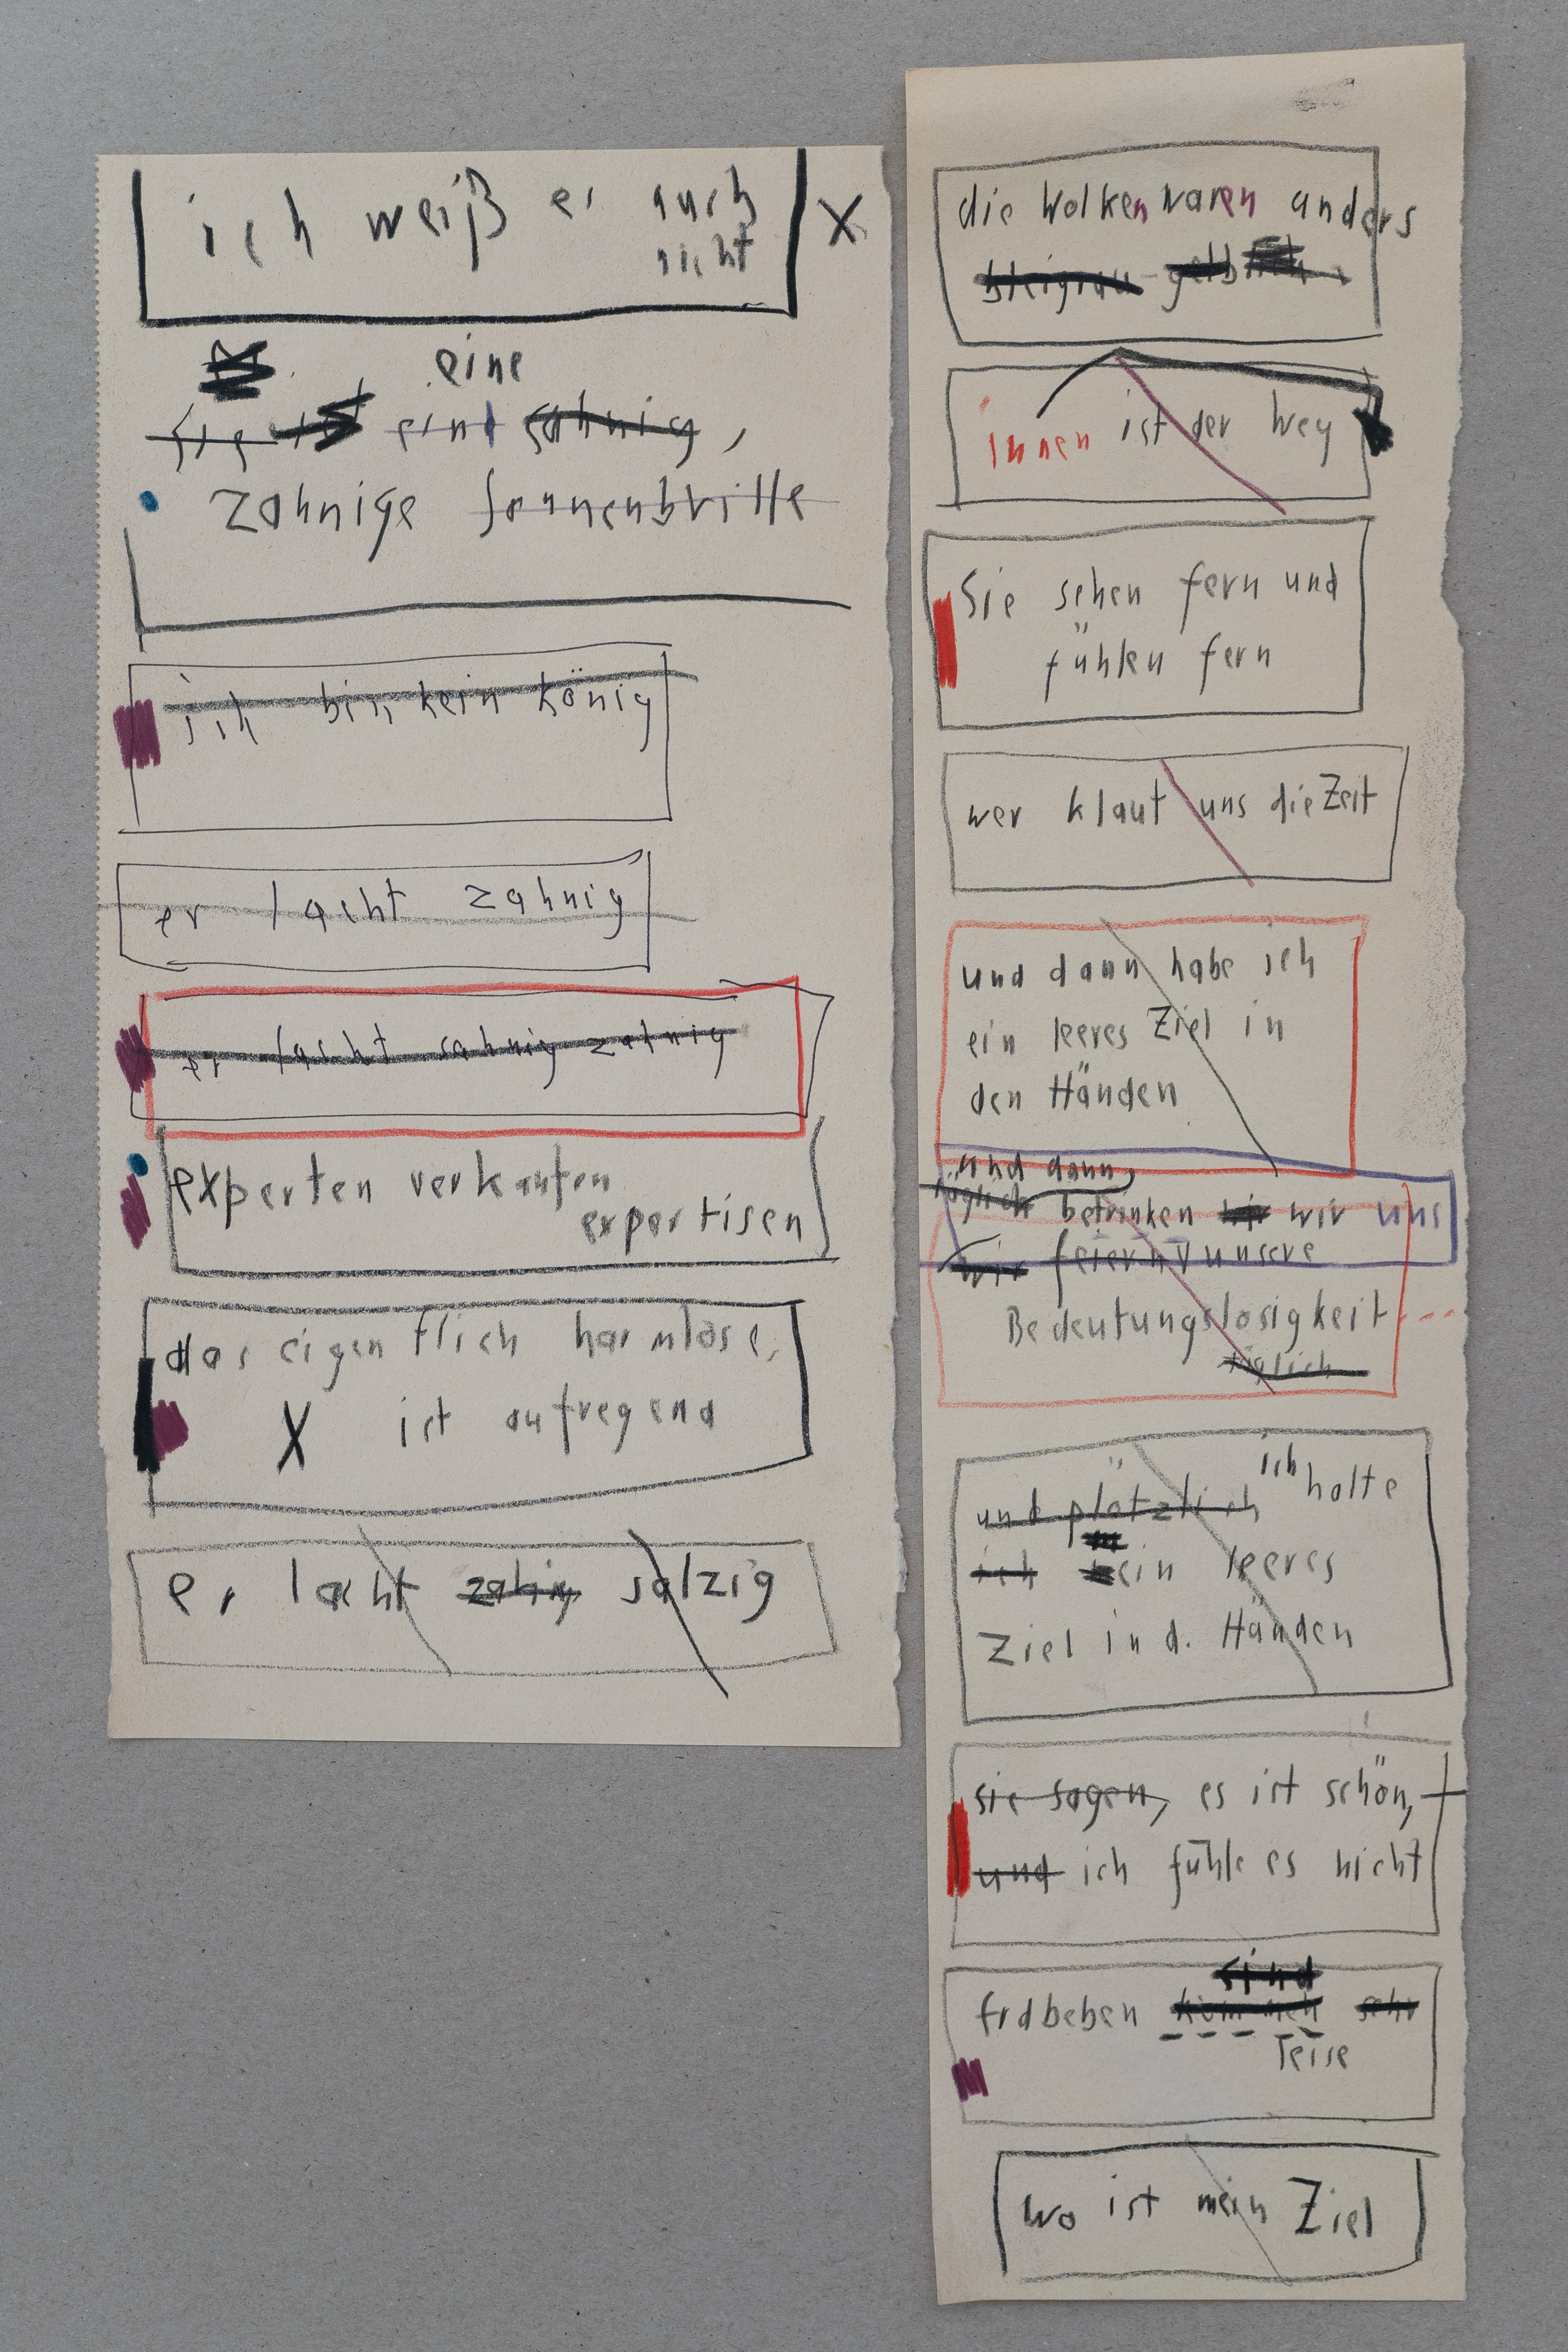 ich weiß es auch
nicht
eine
sie ist eine sahnig,
zahnige Sonnenbrille
ich bin kein könig
er lacht zahnig
er lacht sahnig zahnig
experten verkaufen
expertisen
das eigentlich harmlose,
X ist aufregend
er lacht zahnig salzig
die Wolken waren anders
bleigrau gelb
innen ist der Weg
Sie sehen fern und
fühlen fern
wer klaut uns die Zeit
und dann habe ich
ein leeres Ziel in
den Händen
und dann
täglich betrinken wir wir uns
wir feiern unsere
Bedeutungslosigkeit
täglich
und plötzlich ich halte
ich ein leeres
Ziel in d. Händen
sie sagen, es ist schön,
und ich fühle es nicht
sind
Erdbeben kommen sehr
leise
wo ist mein Ziel